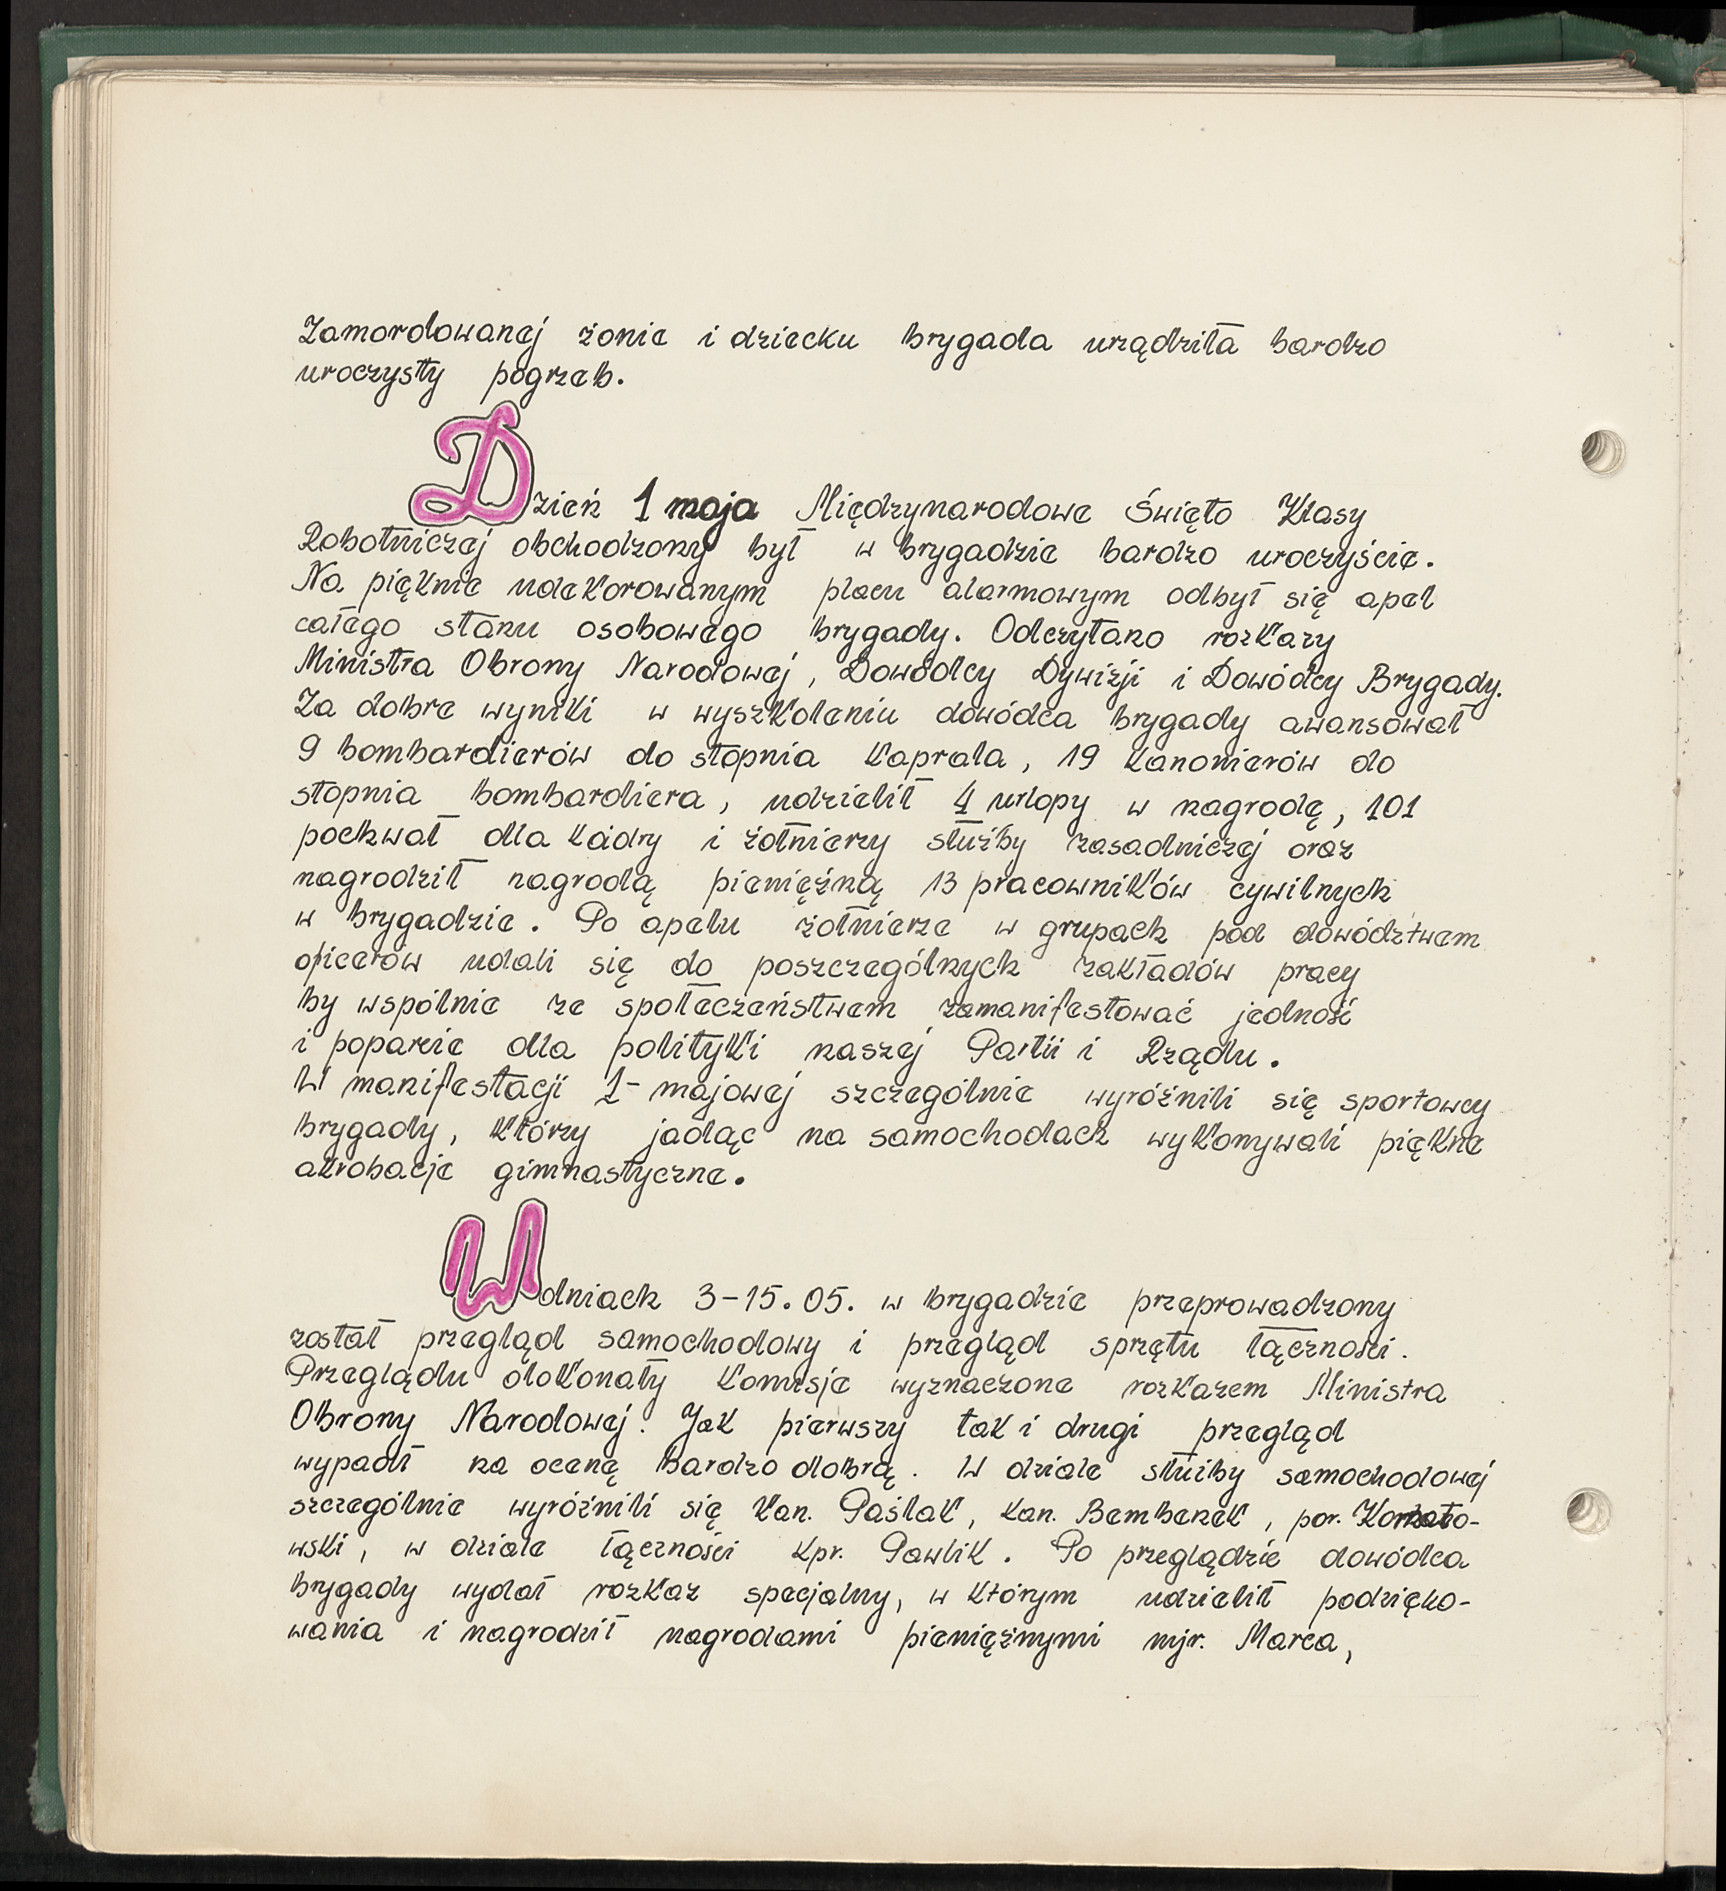 Zamordowanej żonie i dziecku brygada urządziła bardzo
uroczysty pogrzeb.
Dzień 1 maja Międzynarodowe Święto Klasy
Robotniczej obchodzony był w brygadzie bardzo uroczyście.
Na pięknie udekorowanym placu alarmowym odbył się apel
całego stanu osobowego brygady. Odczytano rozkazy
Ministra Obrony Narodowej, Dowódcy Dywizji i Dowódcy Brygady.
Za dobre wyniki w wyszkoleniu dowódca brygady awansował
9 bombardierów do stopnia kaprala, 19 kanonierów do
stopnia bombardiera, udzielił 4 urlopy w nagrodę, 101
pochwał dla kadry i żołnierzy służby zasadniczej oraz
nagrodził nagrodą pieniężną 13 pracowników cywilnych
w brygadzie. Po apelu żołnierze w grupach pod dowództwem
oficerów udali się do poszczególnych zakładów pracy
by wspólnie ze społeczeństwem zamanifestować jedność
i poparcie dla polityki naszej Partii i Rządu.
W manifestacji 1-majowej szczególnie wyróżnili się sportowcy
brygady, którzy jadąc na samochodach wykonywali piękne
akrobacje gimnastyczne.
W dniach 3-15.05. w brygadzie przeprowadzony
został przegląd samochodowy i przegląd sprzętu łączności.
Przeglądu dokonały komisje wyznaczone rozkazem Ministra
Obrony Narodowej. Jak pierwszy tak i drugi przegląd
wypadł na ocenę bardzo dobrą. W dziale służby samochodowej
szczególnie wyróżnili się kan. Paślak, kan. Bembenek, por.
wski, w dziale łączności kpr. Pawlik. Po przeglądzie dowódca
brygady wydał rozkaz specjalny, w którym udzielił podzięko-
wania i nagrodził nagrodami pieniężnymi mjr. Marca,